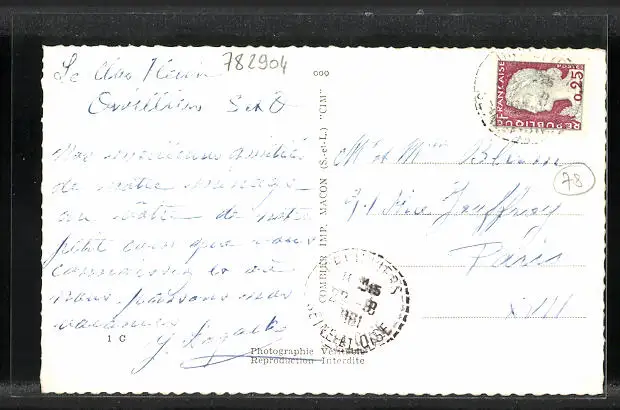 Le Clos Fleuri
782904
Orvilliers S&O
Nos meilleures amitiés
de notre ménage
au vôtre de notre
petit coin que vous
connaissez et où
nous passons nos
vacances
1 C
Photographie Véritable
Reproduction Interdite
COMBIER IMP. MACON (S.-et-L.) "CIM"
REPUBLIQUE FRANÇAISE
POSTES
0,25
Mr et Mme
78
Rue Jouffroy
Paris
XVII
SEINE-ET-OISE